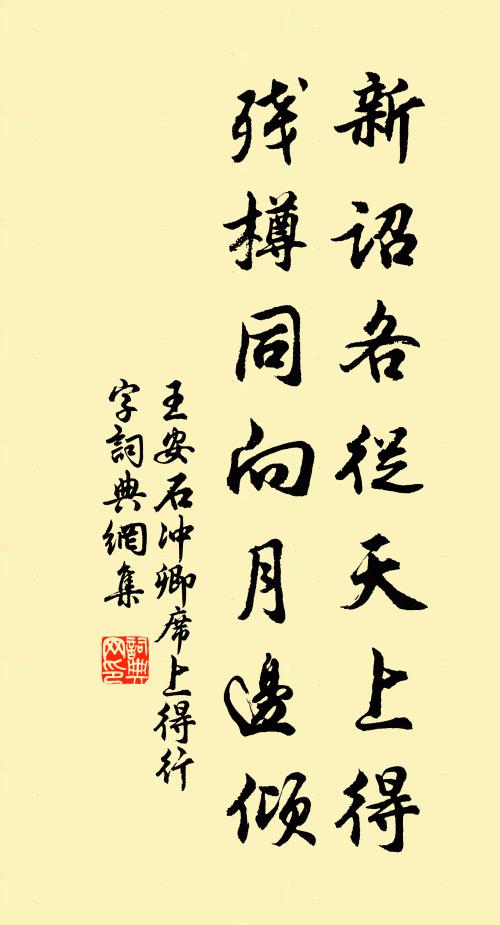 新詔各從天上得
残樽同向月邊傾
王安石冲卿席上得行
字詞典網集
詞典网印